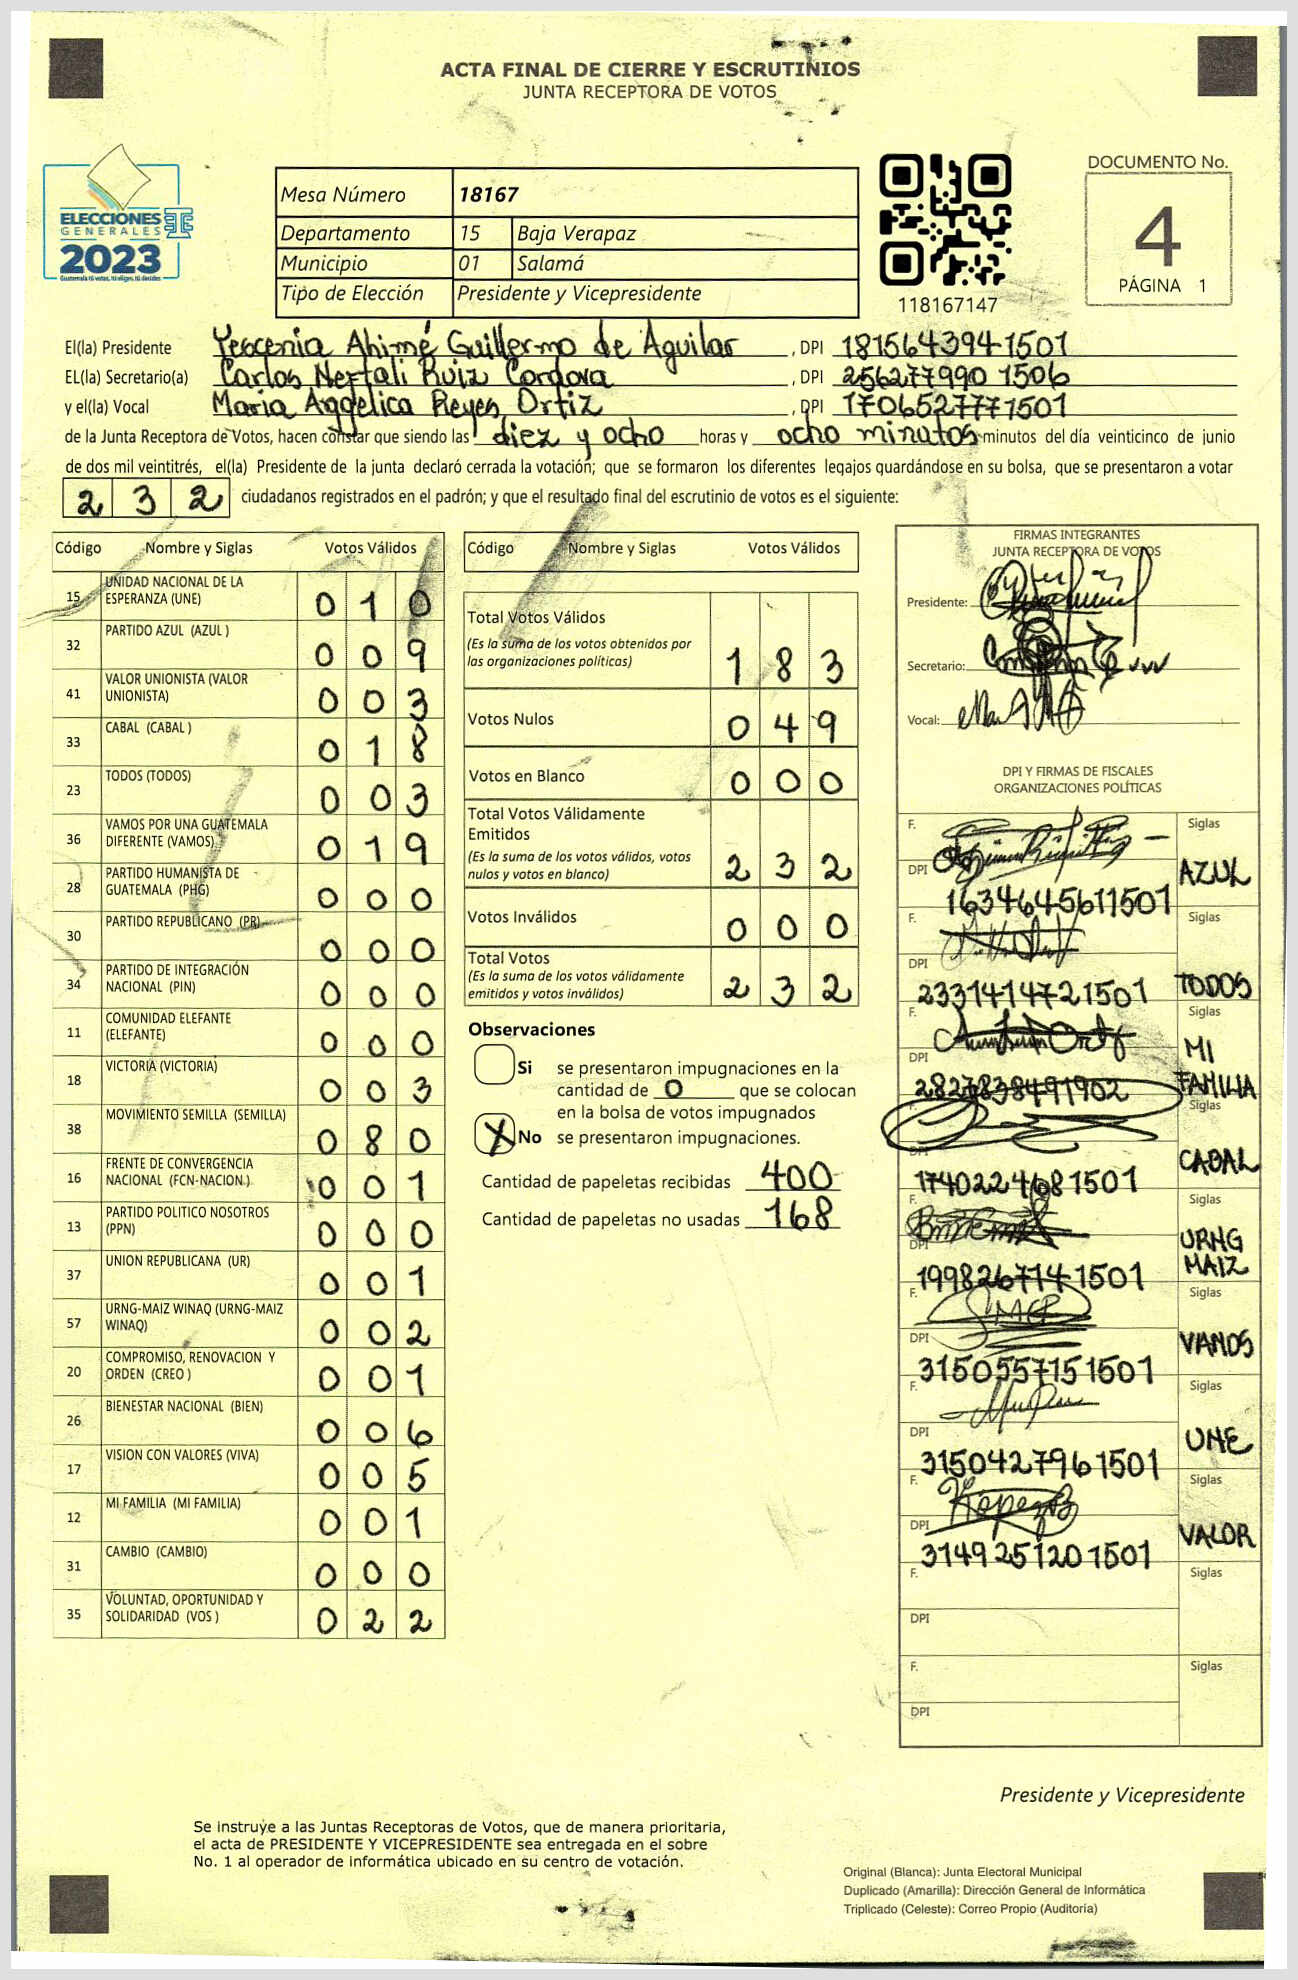 ACTA FINAL DE CIERRE Y ESCRUTINIOS
JUNTA RECEPTORA DE VOTOS
ELECCIONES
GENERALES
2023
Guatemala tú votas, tú eliges, tú decides
Mesa Número 18167
Departamento 15 Baja Verapaz
Municipio 01 Salamá
Tipo de Elección Presidente y Vicepresidente
118167147
DOCUMENTO No.
4
PÁGINA 1
El(la) Presidente Yescenia Ahimé Guillermo de Aguilar , DPI 1815643941501
EL(la) Secretario(a) Carlos Neftali Ruiz Cordova , DPI 256277990 1506
y el(la) Vocal Maria Aggelica Reyes Ortiz , DPI 1706527771501
de la Junta Receptora de Votos, hacen constar que siendo las diez y ocho horas y ocho minutos minutos del día veinticinco de junio
de dos mil veintitrés, el(la) Presidente de la junta declaró cerrada la votación; que se formaron los diferentes legajos guardándose en su bolsa, que se presentaron a votar
2 3 2 ciudadanos registrados en el padrón; y que el resultado final del escrutinio de votos es el siguiente:
Código Nombre y Siglas Votos Válidos
15 UNIDAD NACIONAL DE LA ESPERANZA (UNE) 0 1 0
32 PARTIDO AZUL (AZUL ) 0 0 9
41 VALOR UNIONISTA (VALOR UNIONISTA) 0 0 3
33 CABAL (CABAL ) 0 1 8
23 TODOS (TODOS) 0 0 3
36 VAMOS POR UNA GUATEMALA DIFERENTE (VAMOS) 0 1 9
28 PARTIDO HUMANISTA DE GUATEMALA (PHG) 0 0 0
30 PARTIDO REPUBLICANO (PR) 0 0 0
34 PARTIDO DE INTEGRACIÓN NACIONAL (PIN) 0 0 0
11 COMUNIDAD ELEFANTE (ELEFANTE) 0 0 0
18 VICTORIA (VICTORIA) 0 0 3
38 MOVIMIENTO SEMILLA (SEMILLA) 0 8 0
16 FRENTE DE CONVERGENCIA NACIONAL (FCN-NACION ) 0 0 1
13 PARTIDO POLITICO NOSOTROS (PPN) 0 0 0
37 UNION REPUBLICANA (UR) 0 0 1
57 URNG-MAIZ WINAQ (URNG-MAIZ WINAQ) 0 0 2
20 COMPROMISO, RENOVACION Y ORDEN (CREO ) 0 0 1
26 BIENESTAR NACIONAL (BIEN) 0 0 6
17 VISION CON VALORES (VIVA) 0 0 5
12 MI FAMILIA (MI FAMILIA) 0 0 1
31 CAMBIO (CAMBIO) 0 0 0
35 VOLUNTAD, OPORTUNIDAD Y SOLIDARIDAD (VOS ) 0 2 2
Código Nombre y Siglas Votos Válidos
Total Votos Válidos
(Es la suma de los votos obtenidos por
las organizaciones políticas) 1 8 3
Votos Nulos 0 4 9
Votos en Blanco 0 0 0
Total Votos Válidamente
Emitidos
(Es la suma de los votos válidos, votos
nulos y votos en blanco) 2 3 2
Votos Inválidos 0 0 0
Total Votos
(Es la suma de los votos válidamente
emitidos y votos inválidos) 2 3 2
Observaciones
Si se presentaron impugnaciones en la
cantidad de 0 que se colocan
en la bolsa de votos impugnados
X No se presentaron impugnaciones.
Cantidad de papeletas recibidas 400
Cantidad de papeletas no usadas 168
FIRMAS INTEGRANTES
JUNTA RECEPTORA DE VOTOS
Presidente:
Secretario:
Vocal:
DPI Y FIRMAS DE FISCALES
ORGANIZACIONES POLÍTICAS
F. Siglas
DPI 1634645611501 AZUL
F. Siglas
DPI 2331414721501 TODOS
F. Siglas
DPI 2827838491902 MI FAMILIA
F. Siglas
DPI 1740224681501 CABAL
F. Siglas
DPI 1998267141501 URNG MAIZ
F. Siglas
DPI 3150557151501 VAMOS
F. Siglas
DPI 3150427961501 UNE
F. Siglas
DPI 3149251201501 VALOR
F. Siglas
DPI
F. Siglas
DPI
Presidente y Vicepresidente
Se instruye a las Juntas Receptoras de Votos, que de manera prioritaria,
el acta de PRESIDENTE Y VICEPRESIDENTE sea entregada en el sobre
No. 1 al operador de informática ubicado en su centro de votación.
Original (Blanca): Junta Electoral Municipal
Duplicado (Amarilla): Dirección General de Informática
Triplicado (Celeste): Correo Propio (Auditoría)